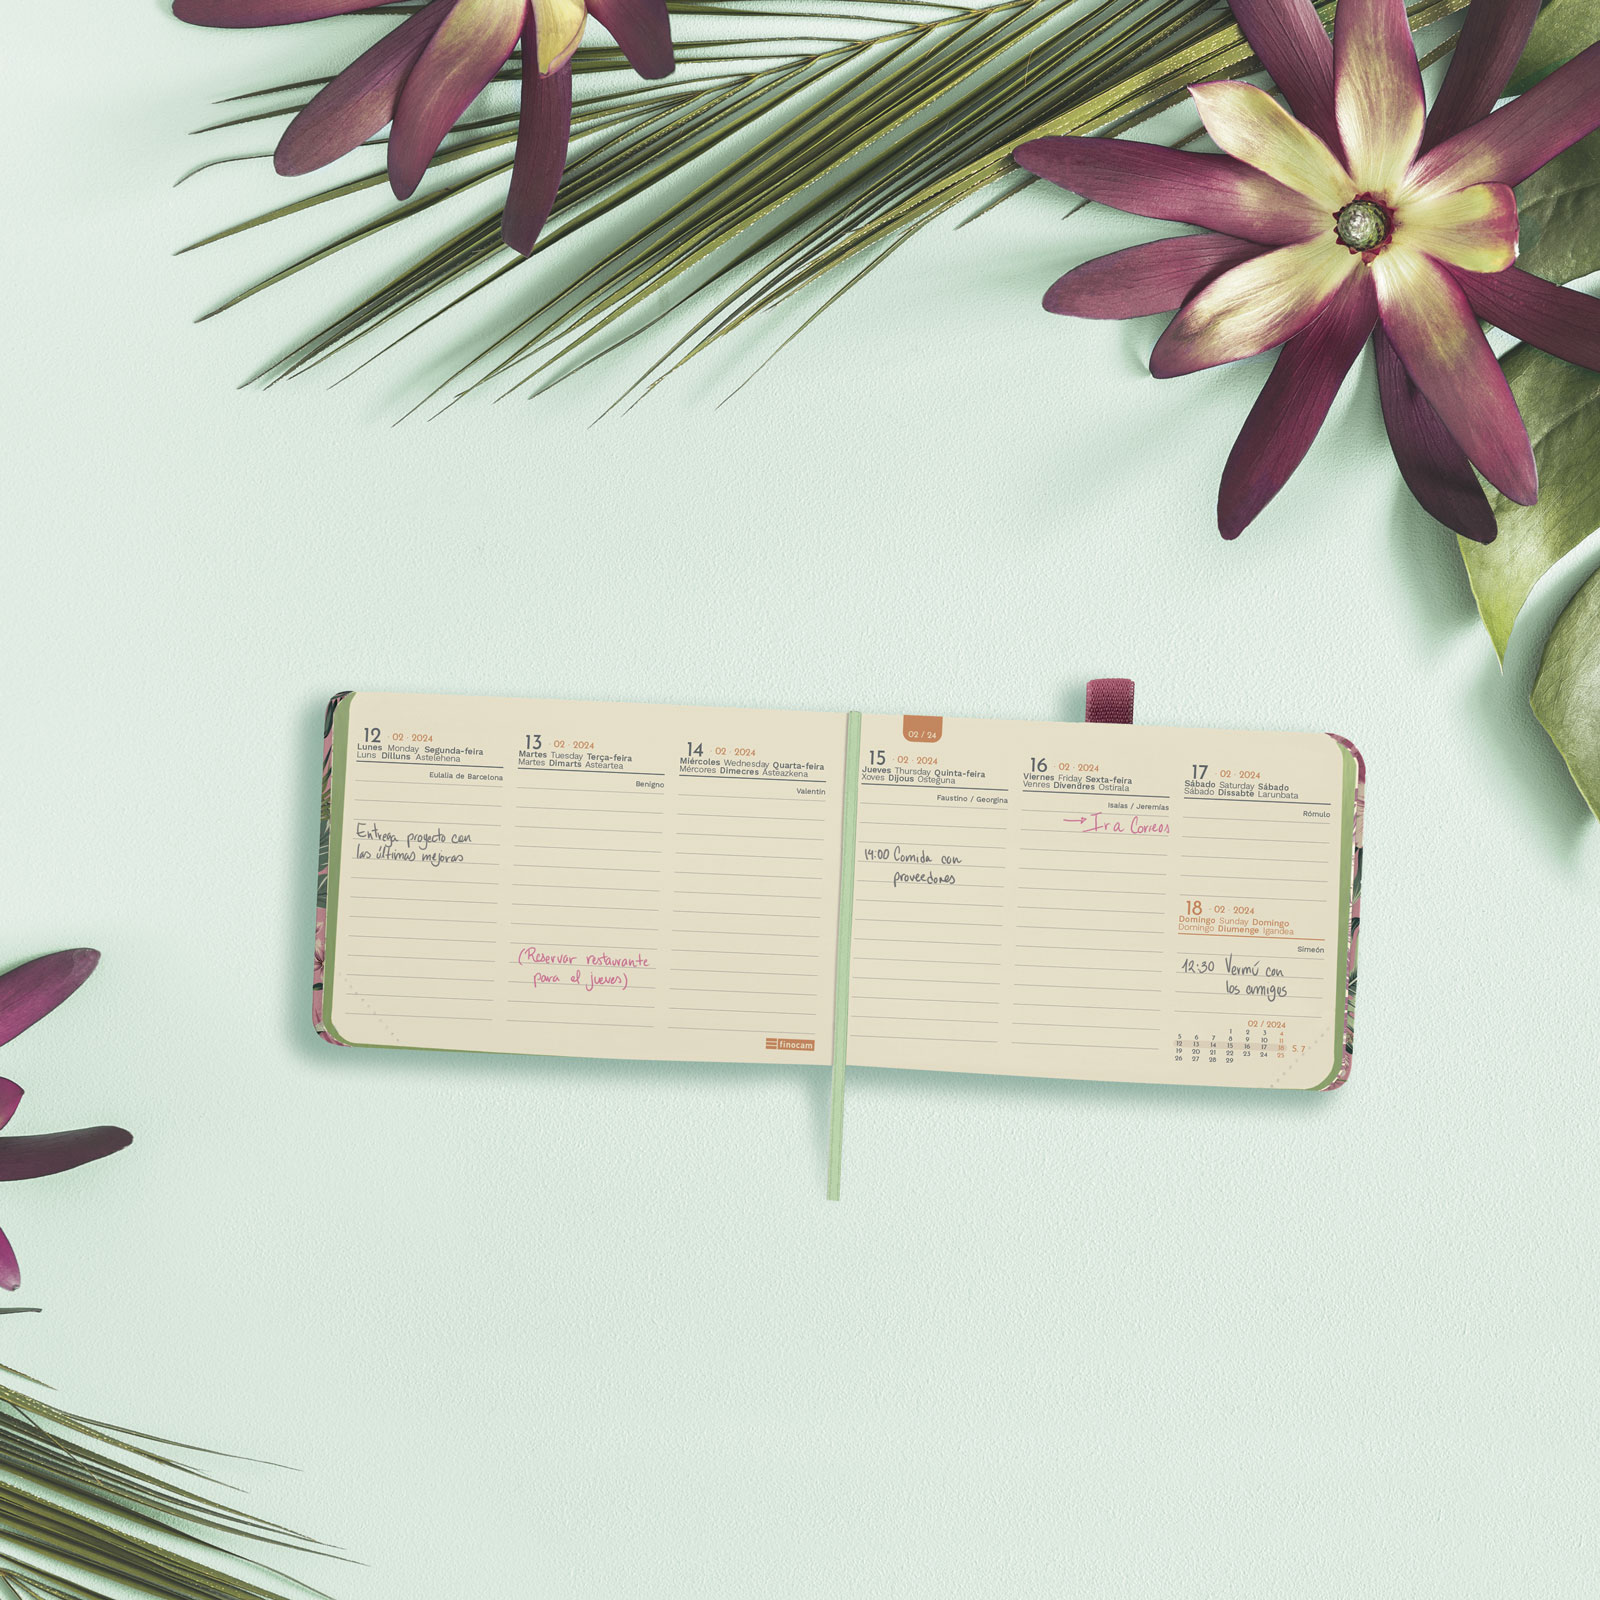 12 · 02 · 2024
Lunes Monday Segunda-feira
Luns Dilluns Astelehena
Eulalia de Barcelona
Entrega proyecto con
las últimas mejoras
13 · 02 · 2024
Martes Tuesday Terça-feira
Martes Dimarts Asteartea
Benigno
(Reservar restaurante
para el jueves)
14 · 02 · 2024
Miércoles Wednesday Quarta-feira
Mércores Dimecres Asteazkena
Valentín
finocam
02 / 24
15 · 02 · 2024
Jueves Thursday Quinta-feira
Xoves Dijous Osteguna
Faustino / Georgina
14:00 Comida con
proveedores
16 · 02 · 2024
Viernes Friday Sexta-feira
Venres Divendres Ostirala
Isaías / Jeremías
→ Ir a Correos
17 · 02 · 2024
Sábado Saturday Sábado
Sábado Dissabte Larunbata
Rómulo
18 · 02 · 2024
Domingo Sunday Domingo
Domingo Diumenge Igandea
Simeón
12:30 Vermú con
los amigos
02 / 2024
1 2 3 4
5 6 7 8 9 10 11
12 13 14 15 16 17 18 S. 7
19 20 21 22 23 24 25
26 27 28 29